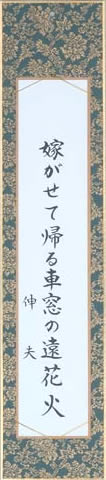 嫁がせて帰る車窓の遠花火
伸夫